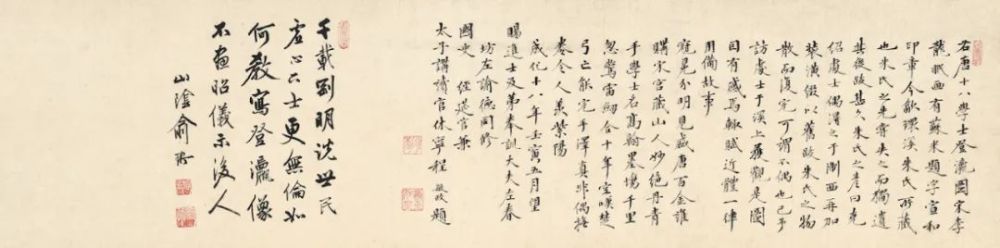 右唐十八學士登瀛圖宋李
龍眠画有蘇米題字宣和
印章今歙環溪朱氏所藏
也朱氏之先嘗失之而獨遺
其後跋甚久朱氏之彥曰克
紹處士偶得之于浙西再加
裝潢假以舊跋朱氏之物
散而復完可謂不偶也已予
訪處士于溪上屢觀是圖
因有感焉輒賦近體一律
用備故事
分明見盛唐百金誰
購宋宮藏山人妙絕丹青
手學士名高翰墨場千里
忽驚雷劒合十年空嘆楚
弓亡能完手澤真非偶
卷令人羨紫陽
成化十八年壬寅五月望
賜進士及第奉訓大夫左春
坊左諭德同修
國史 經筵官兼
太子講讀官休寧程敏政題
千載明說世民
虛心六士更無倫如
何教寫登瀛像
不畫昭儀示後人
山陰俞